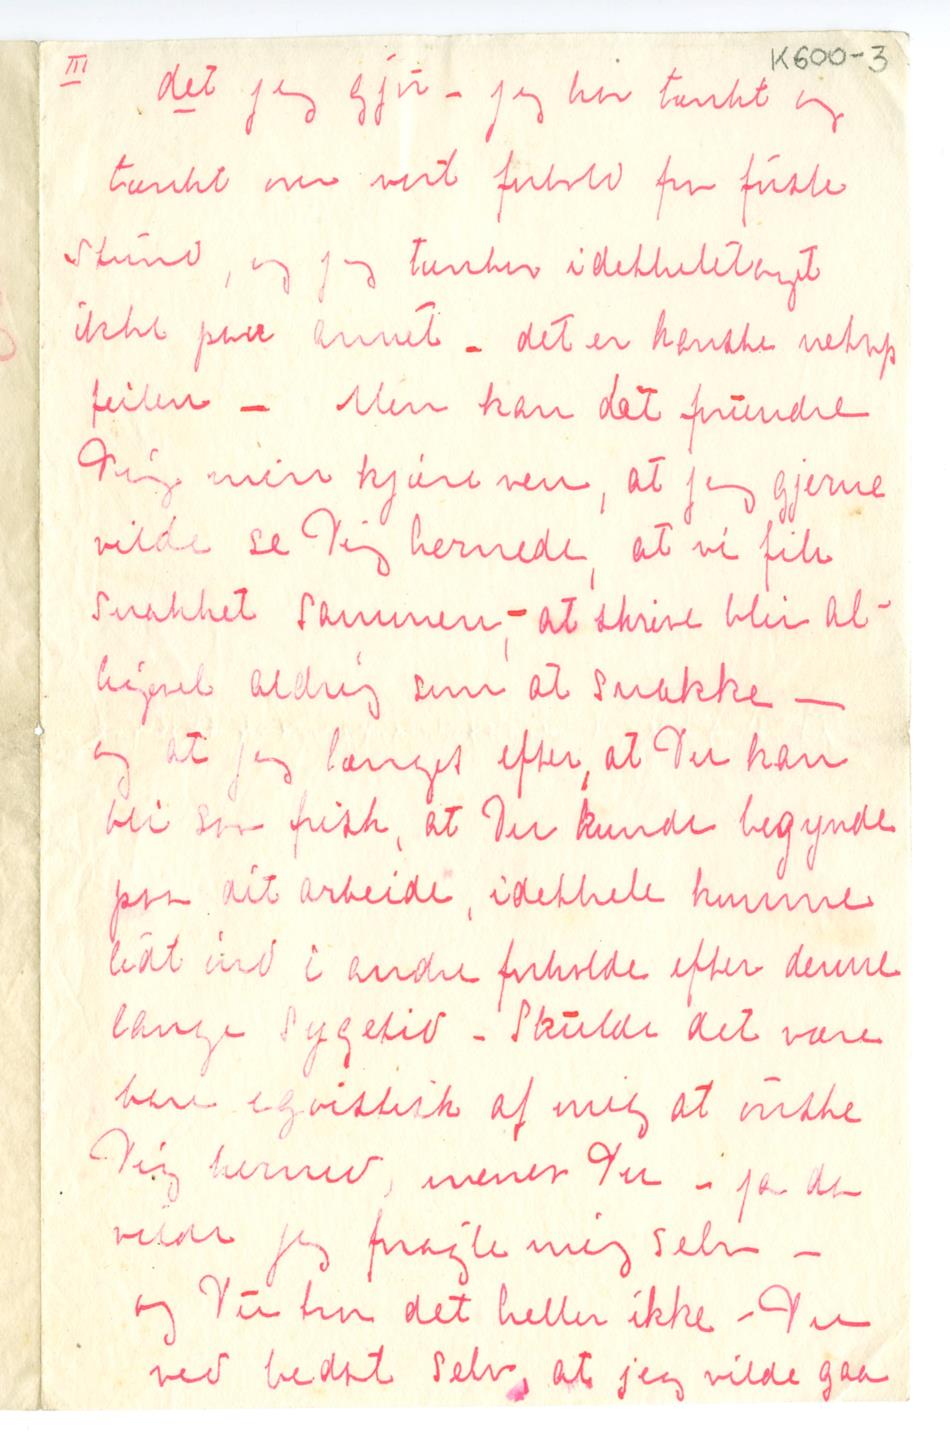 III
K600-3
det jeg gjør – jeg har tænkt og
tænkt over vort forhold fra første
stund, og jeg tænker idethheletaget
ikke paa annet – det er kanske netop
feilen – Men kan det forundre
Dig min kjære ven, at jeg gjerne
vilde se Dig hernede, at vi fik
snakket sammen, – at skrive blir al-
ligevel aldrig som at snakke –
og at jeg længes efter, at Du kan
bli saa frisk, at Du kunde begynde
paa dit arbeide, idethele komme
lidt ind i andre forholde efter denne
lange sygetid – Skulde det være
bare egoistisk af mig at ønske
Dig herned, mener Du – ja da
vilde jeg foragte mig selv –
og Du tror det heller ikke – Du
ved bedst selv, at jeg vilde gaa